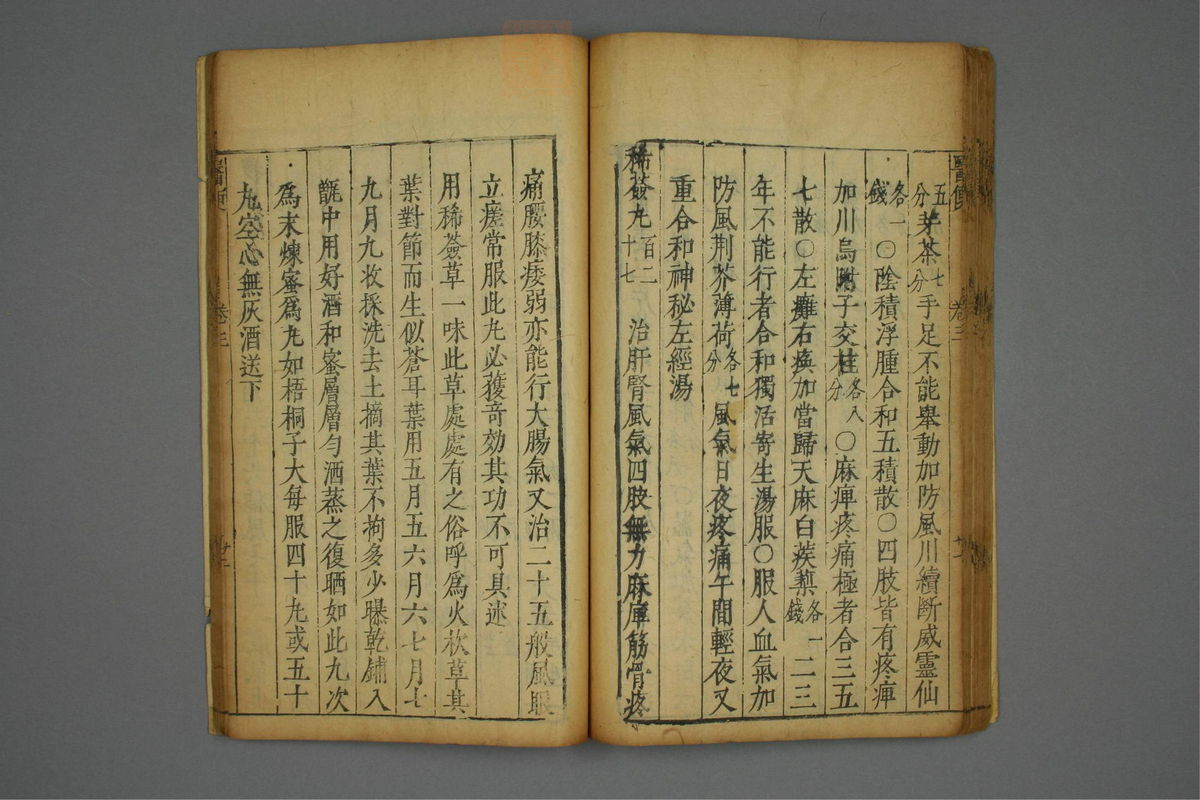 醫便
卷三
廿一
五分芽茶七分手足不能舉動加防風川續斷威靈仙
各一錢〇陰積浮腫合和五積散〇四肢皆有疼痺
加川烏附子交桂各八分〇麻痺疼痛極者合三五
七散〇左癱右瘓加當歸天麻白蒺藜各一錢二三
年不能行者合和獨活寄生湯服〇服人血氣加
防風荆芥薄荷各七分風氣日夜疼痛午間輕夜又
重合和神秘左經湯
稀薟丸百二十七 治肝腎風氣四肢無力麻痺筋骨疼
痛腰膝痿弱亦能行大腸氣又治二十五般風眼
立瘥常服此丸必獲竒効其功不可具述
用稀薟草一味此草處處有之俗呼爲火杴草其
葉對節而生似蒼耳葉用五月五六月六七月七
九月九收採洗去土摘其葉不拘多少曝乾鋪入
甑中用好酒和蜜層層勻洒蒸之復晒如此九次
爲末煉蜜爲丸如梧桐子大每服四十丸或五十
丸空心無灰酒送下
醫便
卷三